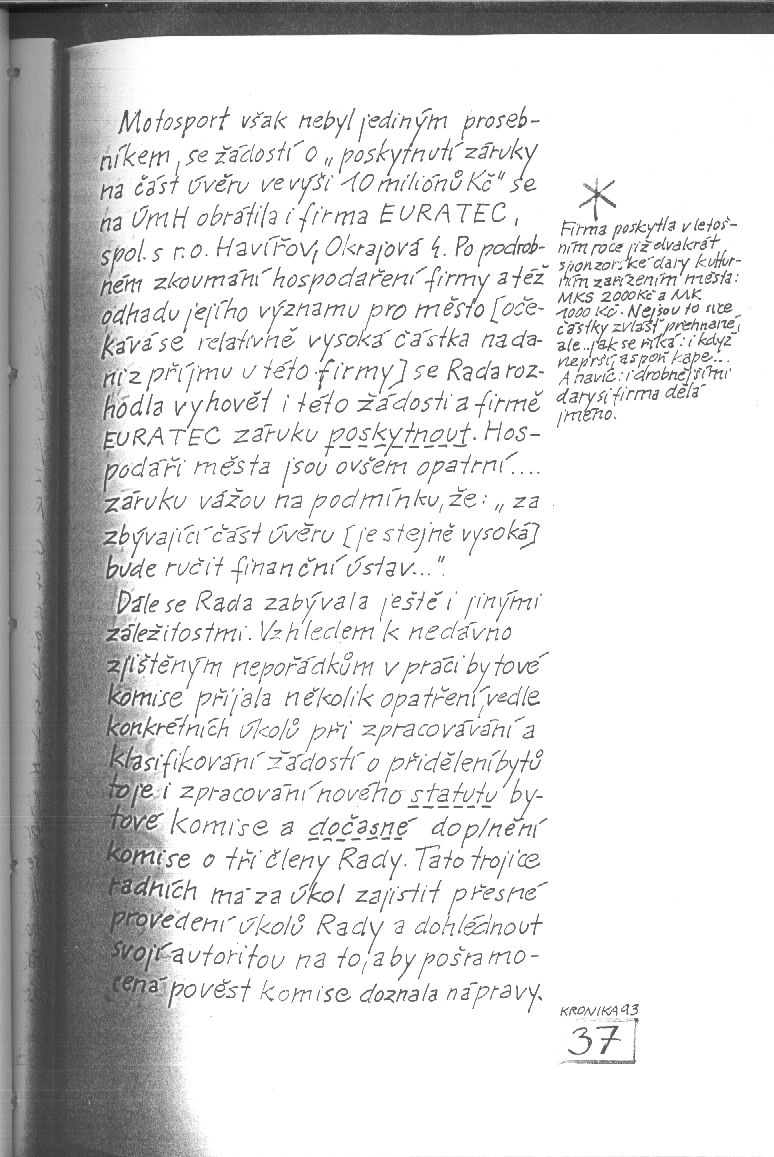 Motosport však nebyl jediným proseb-
níkem, se žádostí o „poskytnutí záruky
na část úvěru ve výši 10 miliónů Kč" se
na ÚmH obrátila i firma EURATEC,
spol. s r.o. Havířov, Okrajová 4. Po podrob-
ném zkoumání hospodaření firmy a též
odhadu jejího významu pro město [oče-
kává se relativně vysoká částka z na da-
ni z příjmu u této firmy] se Rada roz-
hodla vyhovět i této žádosti a firmě
EURATEC záruku poskytnout. Hos-
podáři města jsou ovšem opatrní....
záruku vážou na podmínku, že: „za
zbývající část úvěru [je stejně vysoká]
bude ručit finanční ústav...".
Dále se Rada zabývala ještě i jinými
záležitostmi. Vzhledem k nedávno
zjištěným nepořádkům v práci bytové
komise přijala několik opatření, vedle
konkrétních úkolů při zpracovávání a
klasifikování žádostí o přidělení bytů
to je i zpracování nového statutu by-
tové komise a dočasné doplnění
komise o tři členy Rady. Tato trojice
radních má za úkol zajistit přesné
provedení úkolů Rady a dohlédnout
svojí autoritou na to, aby pošramo-
cená pověst komise doznala nápravy.
*
Firma poskytla v letoš-
ním roce již dvakrát
sponzorské dary kultur-
ním zařízením města:
MKS 2000 Kč a MK
1000 Kč. Nejsou to sice
částky zvlášť přehnané,
ale... jak se říká: i když
neprší, aspoň kape...
A navíc: i drobnějšími
dary si firma dělá
jméno.
KRONIKA 93
37